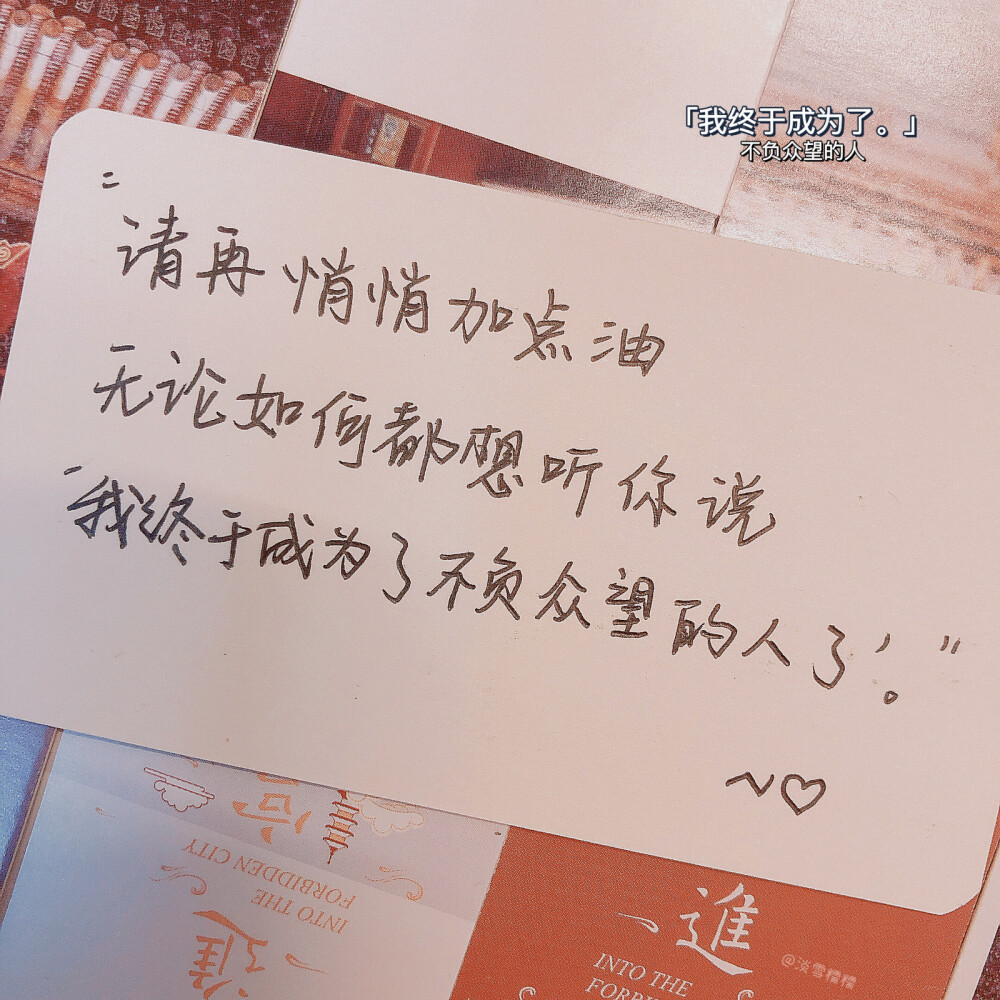 「我终于成为了。」
不负众望的人
"请再悄悄加点油
无论如何都想听你说
'我终于成为了不负众望的人了'。"
~♡
INTO THE
FORBIDDEN CITY
進
進
INTO THE
@淡雪糟糟